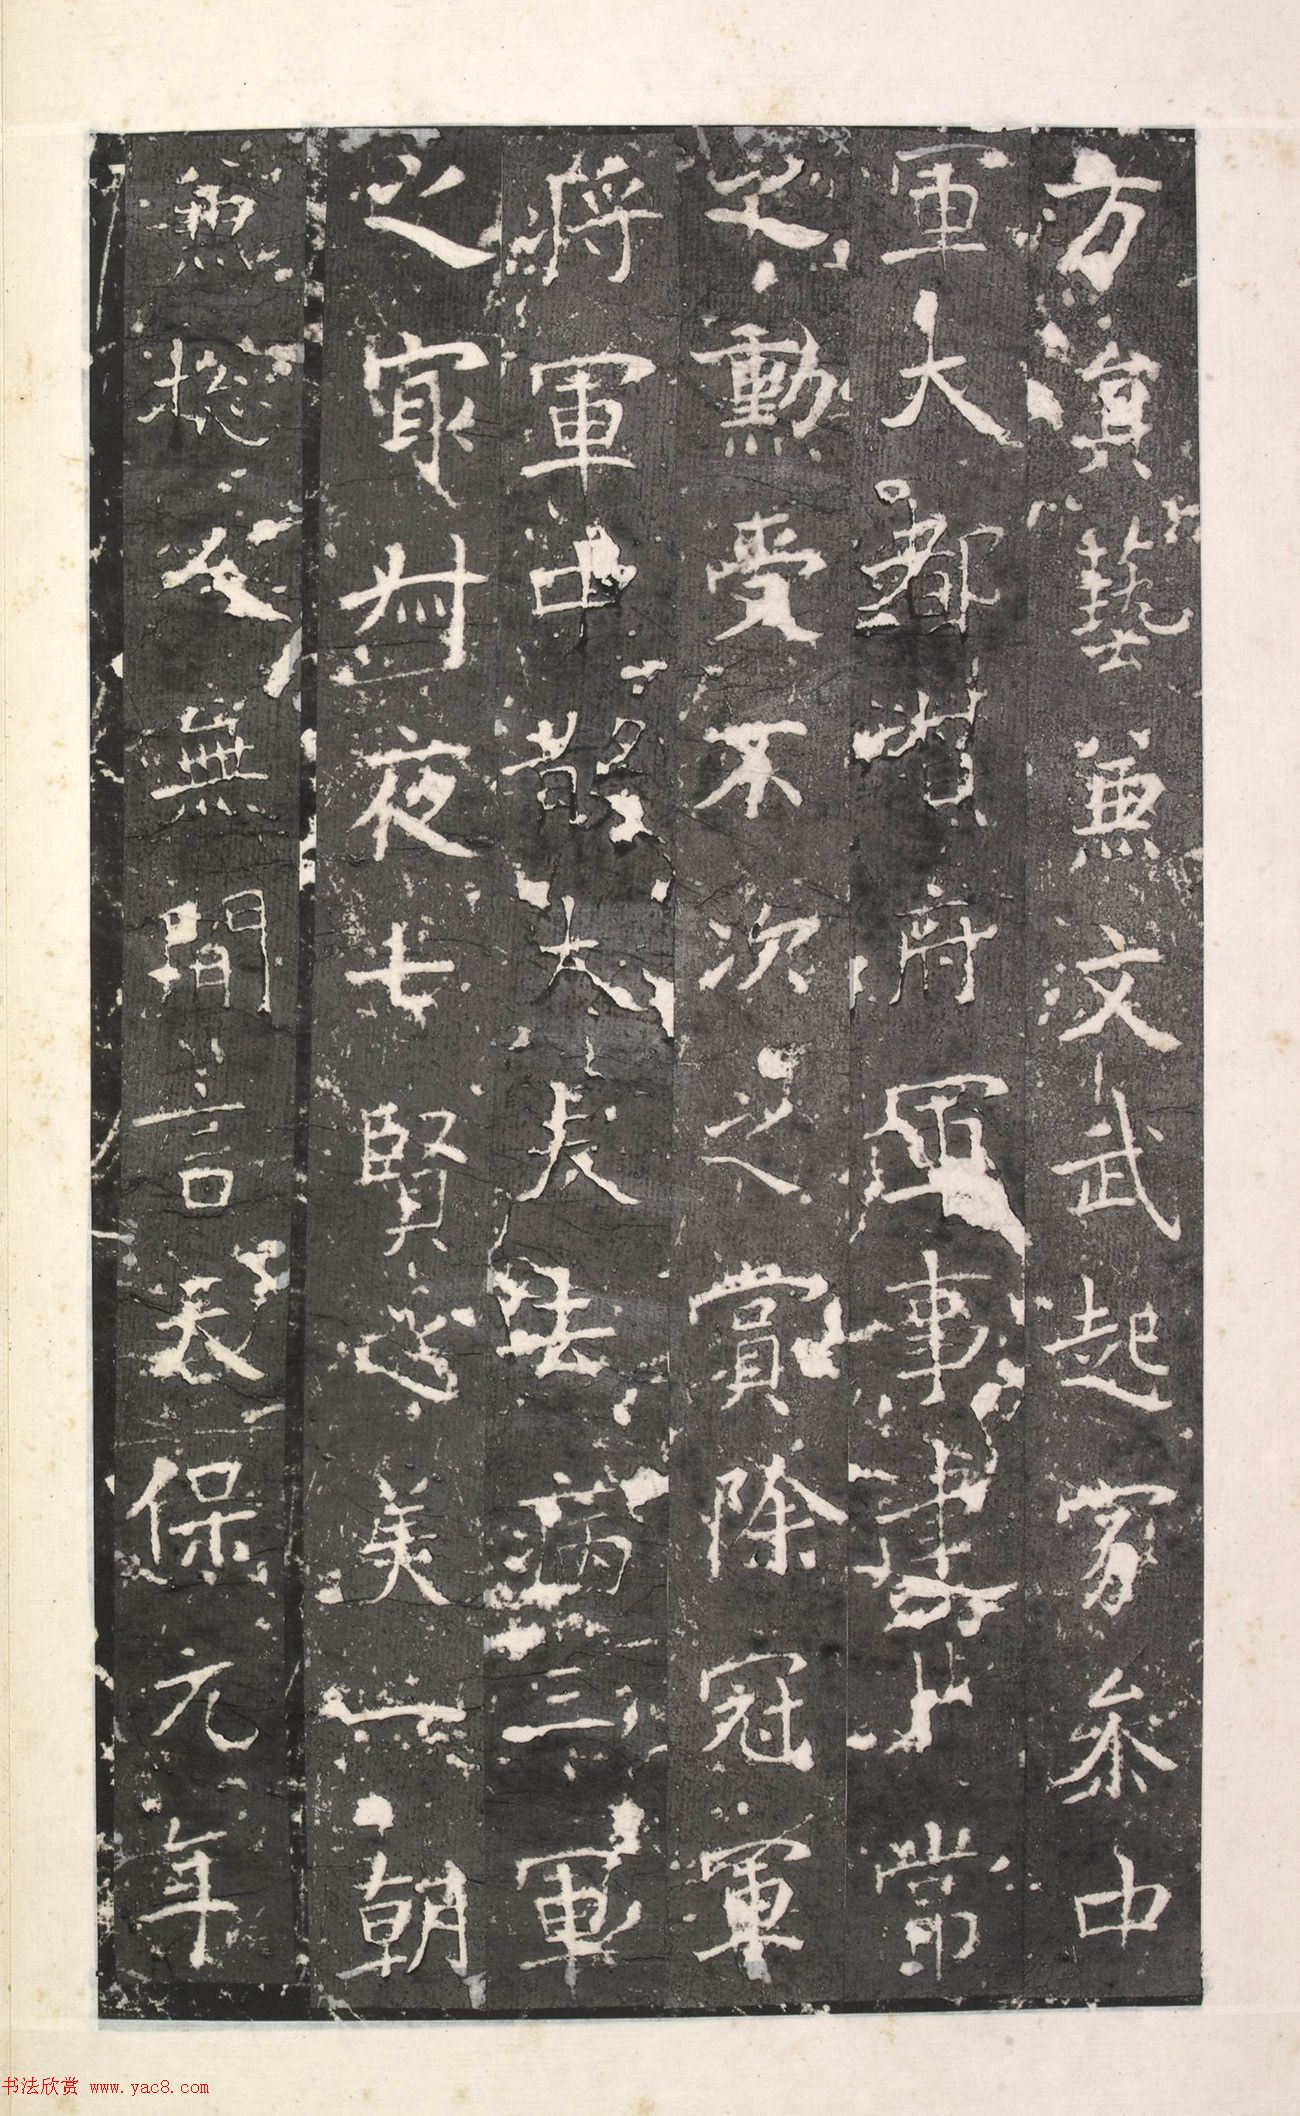 方藝兼文武起家參中
軍大都督府軍事建非常
之勳受不次之賞除冠軍
將軍中散大夫去病三軍
之冣叔夜七賢之美一朝
兼揔人無間言天保元年
书法欣赏 www.yac8.com